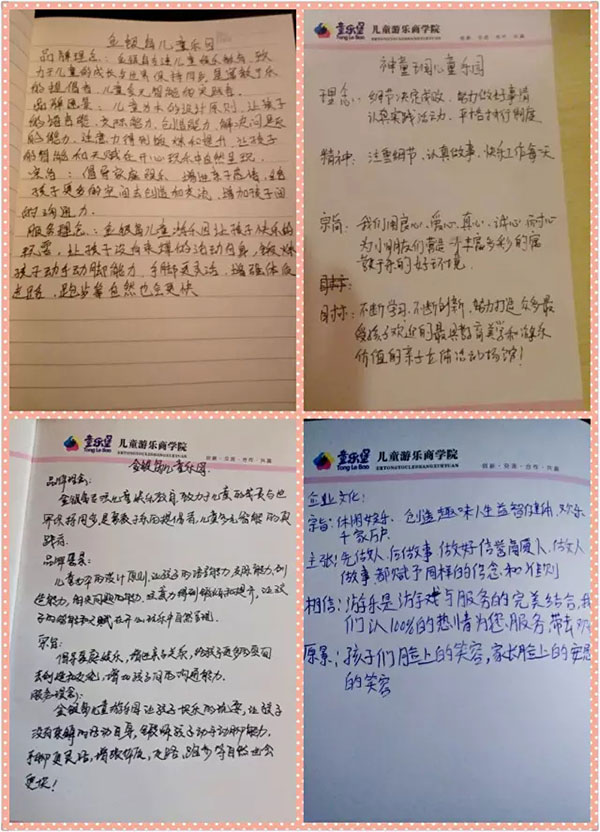 金银岛儿童乐园
品牌理念：金银岛专注儿童娱乐教育，致
力于儿童的成长与世界保持同步是寓教于乐
的提倡者，儿童多元智能的实践者。
品牌愿景：儿童为本的设计原则，让孩子
的语言能、交际能力、创造能力、解决问题
的能力、注意力得到锻炼和提升，让孩子
的智能和天赋在开心玩乐中自然呈现。
宗旨：倡导家庭娱乐，增进亲子感情，给
孩子更多的空间去创造和交流，增加孩子间
的沟通能力。
服务理念：金银岛儿童游乐园让孩子快乐的
玩耍，让孩子没有束缚的活动自身，锻炼
孩子动手动脚能力，手脚更灵活，增强体质
走路，跑步等自然也会更快
童乐堡
Tong Le Bao
儿童游乐商学院
创新·交流·合作·共赢
神童王国儿童乐园
理念：细节决定成败，努力做好事情
认真实践活动，严格执行制度
精神：注重细节、认真做事、快乐工作每天
宗旨：我们用良心、爱心、真心、诚心、耐心
为小朋友们营造丰富多彩的
目标：不断学习、不断创新、努力打造众多最
受孩子欢迎的最具教育美学和游乐
价值的亲子主体活动场馆！
童乐堡
Tong Le Bao
儿童游乐商学院
TONGLEBAOERTONGYOULESHANGXUEYUAN
创新·交流·合作·共赢
金银岛儿童乐园
品牌理念：
金银岛专注儿童娱乐教育，致力于儿童的成长与世
界保持同步是寓教于乐的提倡者，儿童多元智能的实
践者。
品牌愿景：
儿童为本的设计原则，让孩子的语言能力、交际能力、创
造能力、解决问题的能力、注意力得到锻炼和提升，让孩
子的智能和天赋在开心玩乐中自然呈现。
宗旨：
倡导家庭娱乐，增进亲子关系，给孩子更多的空间
去创造和交流，增加孩子间的沟通能力。
服务理念：
金银岛儿童游乐园让孩子快乐的玩耍，让孩子
没有束缚的活动自身，锻炼孩子动手动脚能力，
手脚更灵活，增强体质，走路，跑步等自然也会
更快！
童乐堡
Tong Le Bao
儿童游乐商学院
创新·交流·合作·共赢
企业文化：
宗旨：休闲娱乐、创造趣味人生益智健体、欢乐
千家万户
主张：先做人、后做事 做好信誉商厦人、做人
做事都赋予同样的信念和准则
相信：游乐是游戏与服务的完美结合，我
们认100%的热情为您服务带去欢
愿景：孩子们脸上的笑容，家长脸上的安慰
的笑容